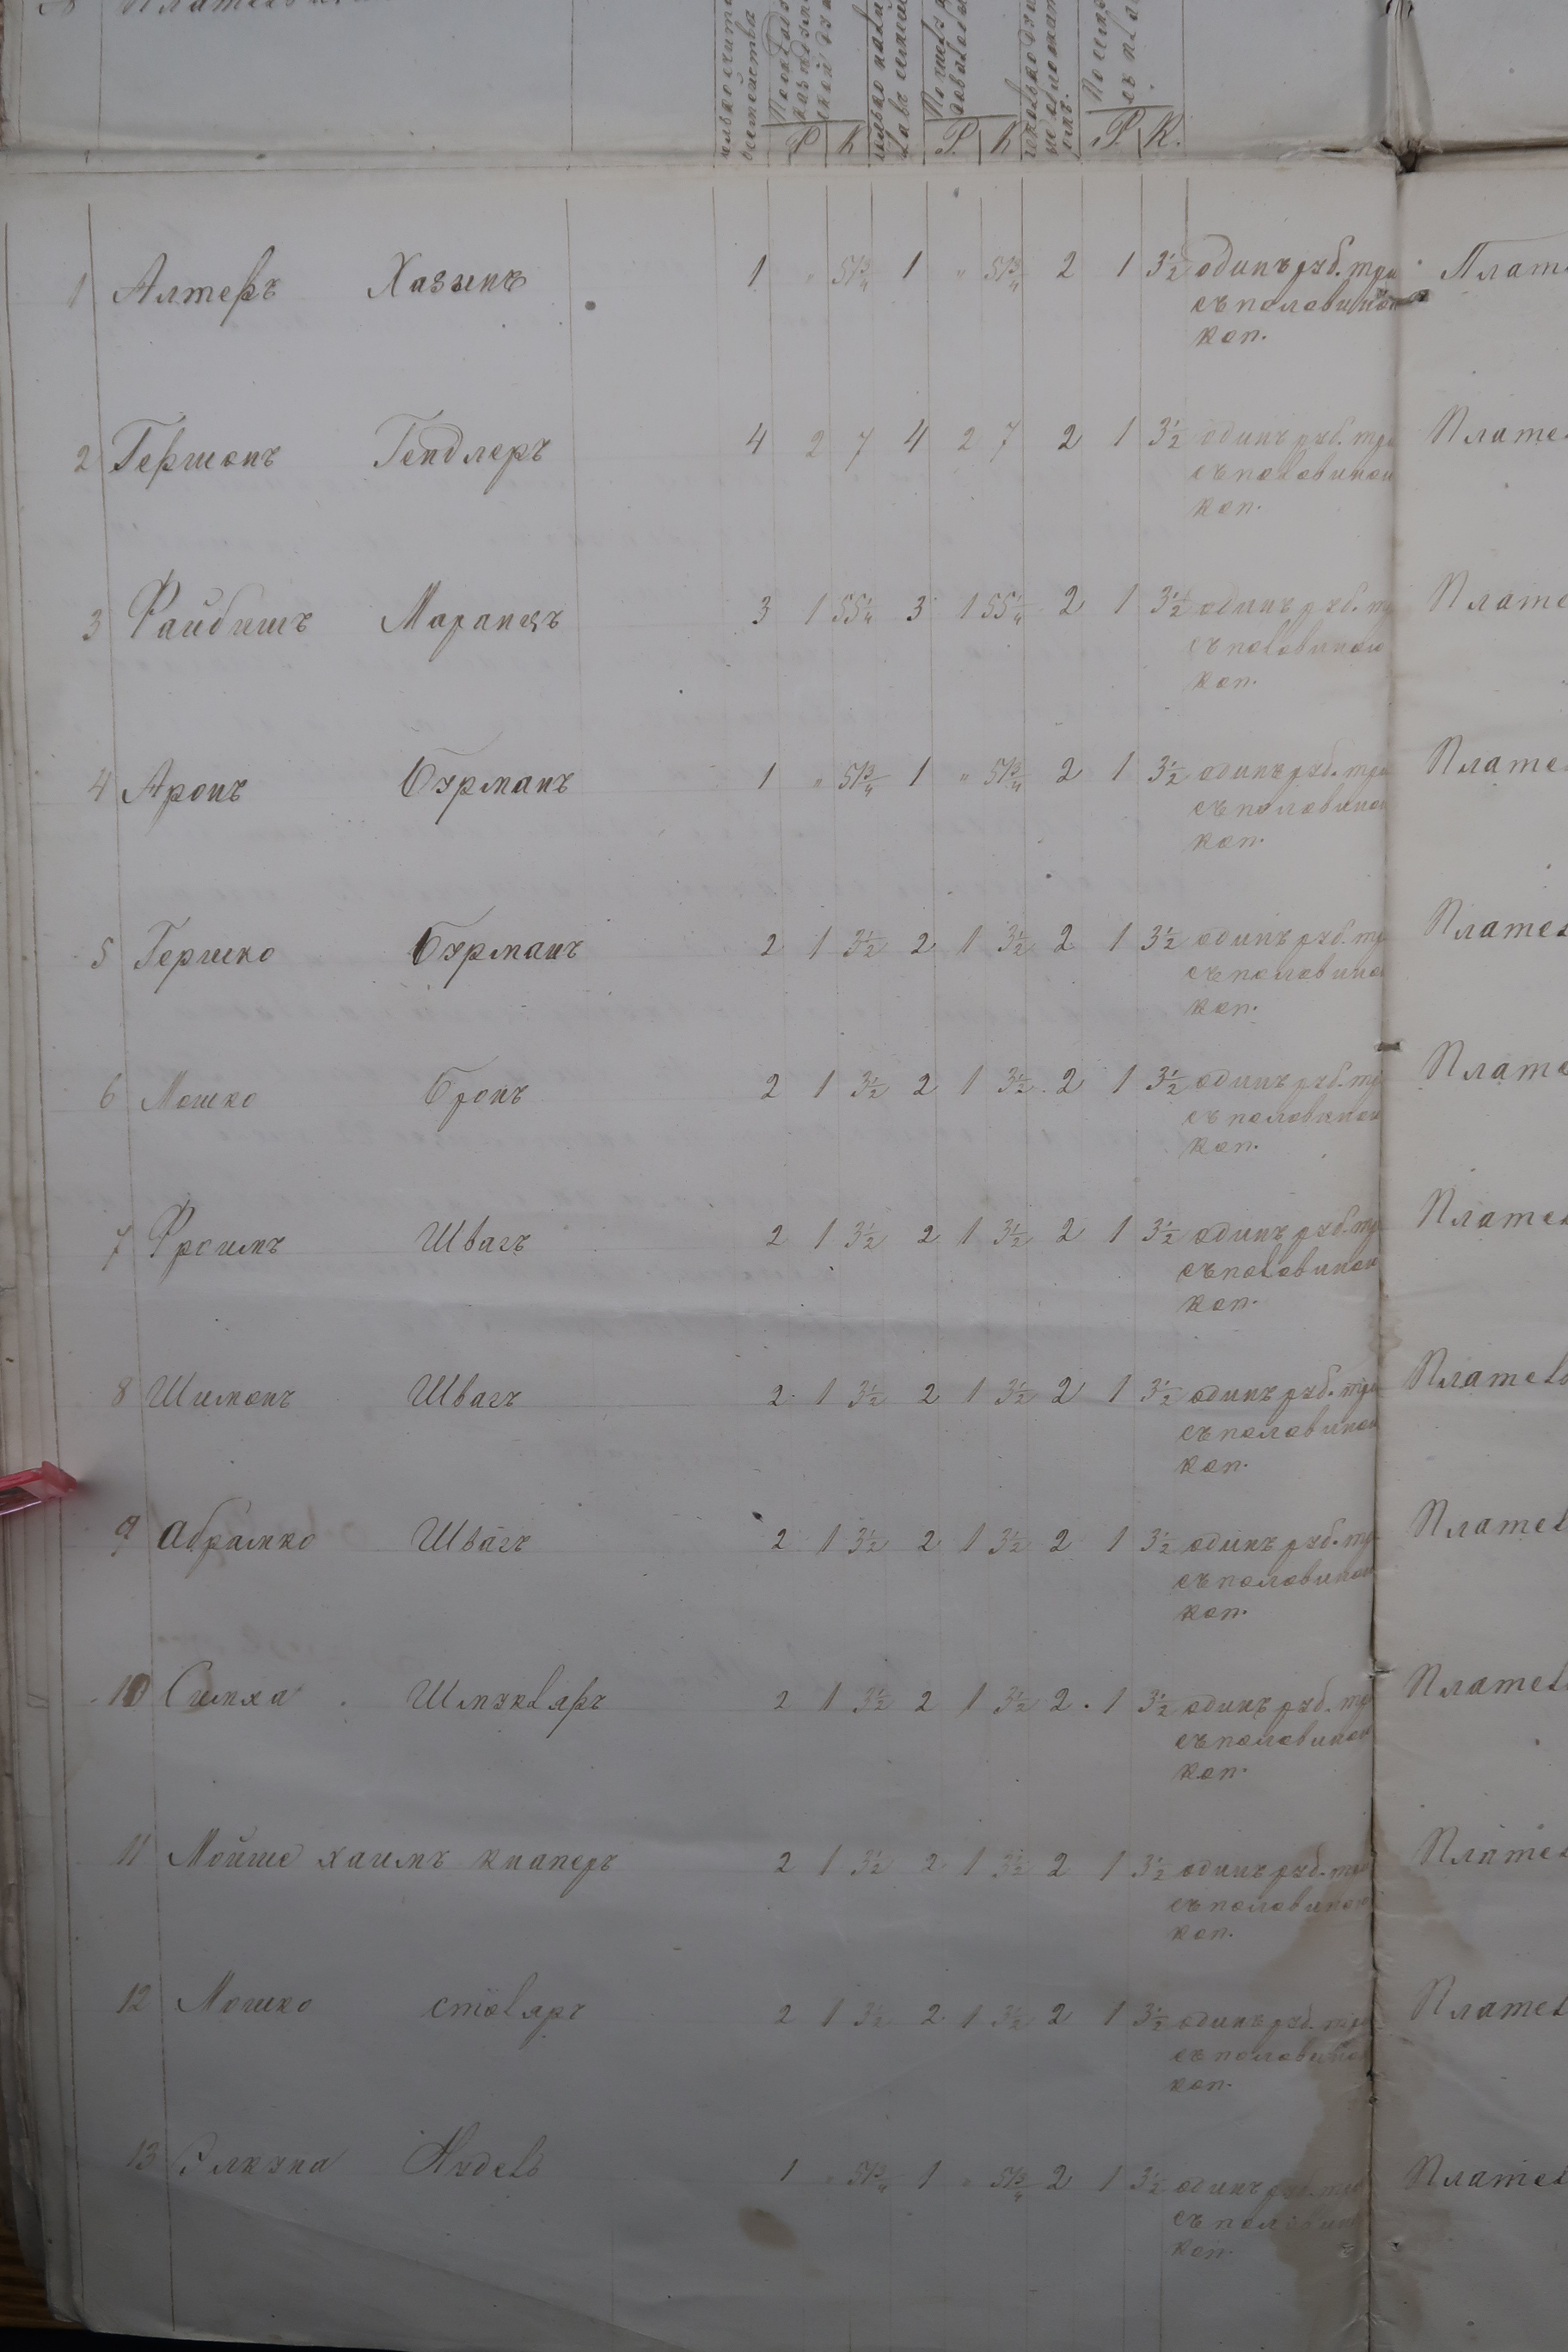 Р К Р. К Р. К.
1 Алтеръ Хазынъ 1 „ 51¾ 1 „ 51¾ 2 1 3½ одинъ руб. три Плат
съ половиною
коп.
2 Гершонъ Гендлеръ 4 2 7 4 2 7 2 1 3½ одинъ руб. три Плате
съ половиною
коп.
3 Файбишъ Маранцъ 3 1 55¼ 3 1 55¼ 2 1 3½ одинъ руб. т Плате
съ половиною
коп.
4 Аронъ Бурманъ 1 „ 51¾ 1 „ 51¾ 2 1 3½ одинъ руб. три Плате
съ половиною
коп.
5 Гершко Бурманъ 2 1 3½ 2 1 3½ 2 1 3½ одинъ руб. тр Плате
съ половино
коп.
6 Мошко Бронъ 2 1 3½ 2 1 3½ 2 1 3½ одинъ руб. тр Плате
съ половиною
коп.
7 Фроимъ Швагъ 2 1 3½ 2 1 3½ 2 1 3½ одинъ руб. тр Плате
съ половиною
коп.
8 Шимонъ Швагъ 2 1 3½ 2 1 3½ 2 1 3½ одинъ руб. три Плател
съ половиною
коп.
9 Абрамко Швагъ 2 1 3½ 2 1 3½ 2 1 3½ одинъ руб. тр Плател
съ половиною
коп.
10 Симха Шмукляръ 2 1 3½ 2 1 3½ 2 1 3½ одинъ руб. тр Плател
съ половиною
коп.
11 Мойше хаимъ кнаперъ 2 1 3½ 2 1 3½ 2 1 3½ одинъ руб. три Плате
съ половиною
коп.
12 Мошко столяръ 2 1 3½ 2 1 3½ 2 1 3½ одинъ руб. три Плател
съ половиною
коп.
13 Элкуна Нудель 1 „ 51¾ 1 „ 51¾ 2 1 3½ одинъ руб. три Плател
съ половин
коп.